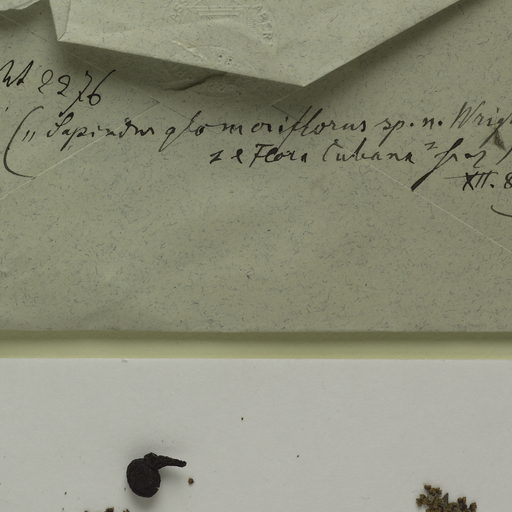 2276
(„ Sapindus glomeriflorus sp. n. Wrig
Flora Cubana
XII. 8